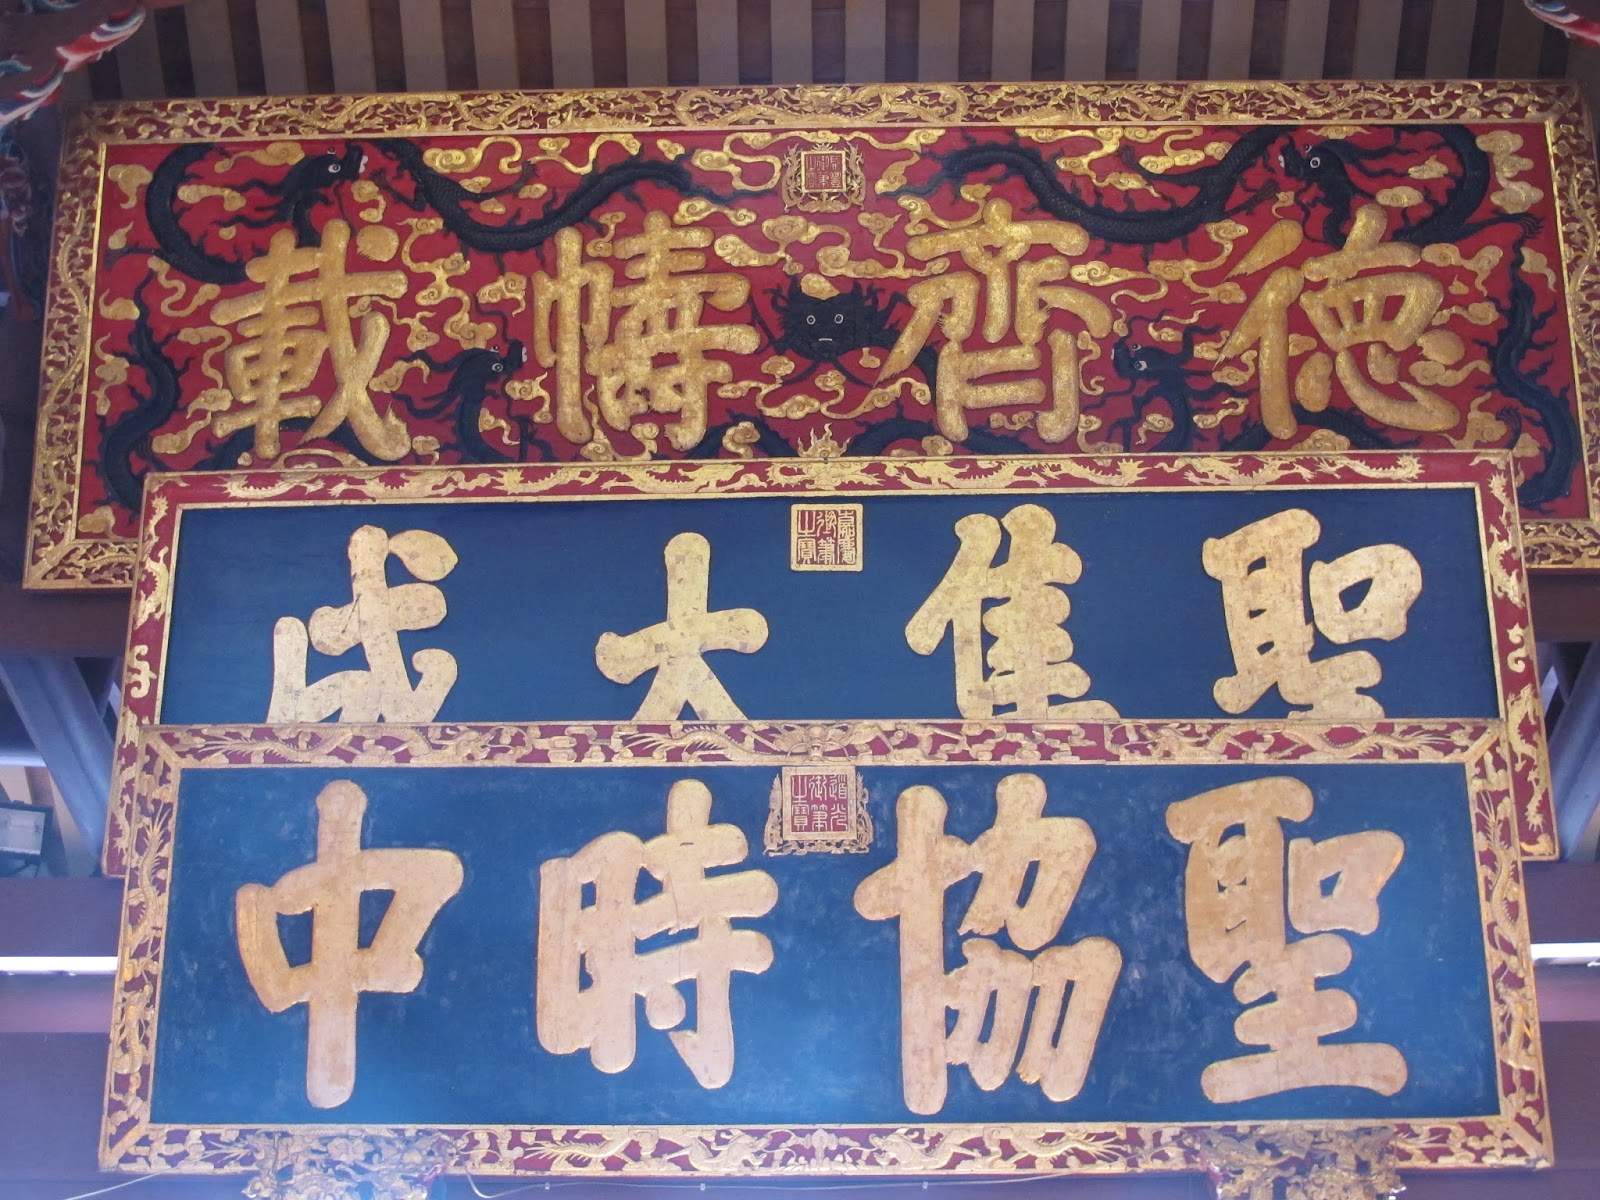 咸豐御筆之寶
德齊幬載
嘉慶御筆之寶
聖集大成
道光御筆之寶
聖協時中